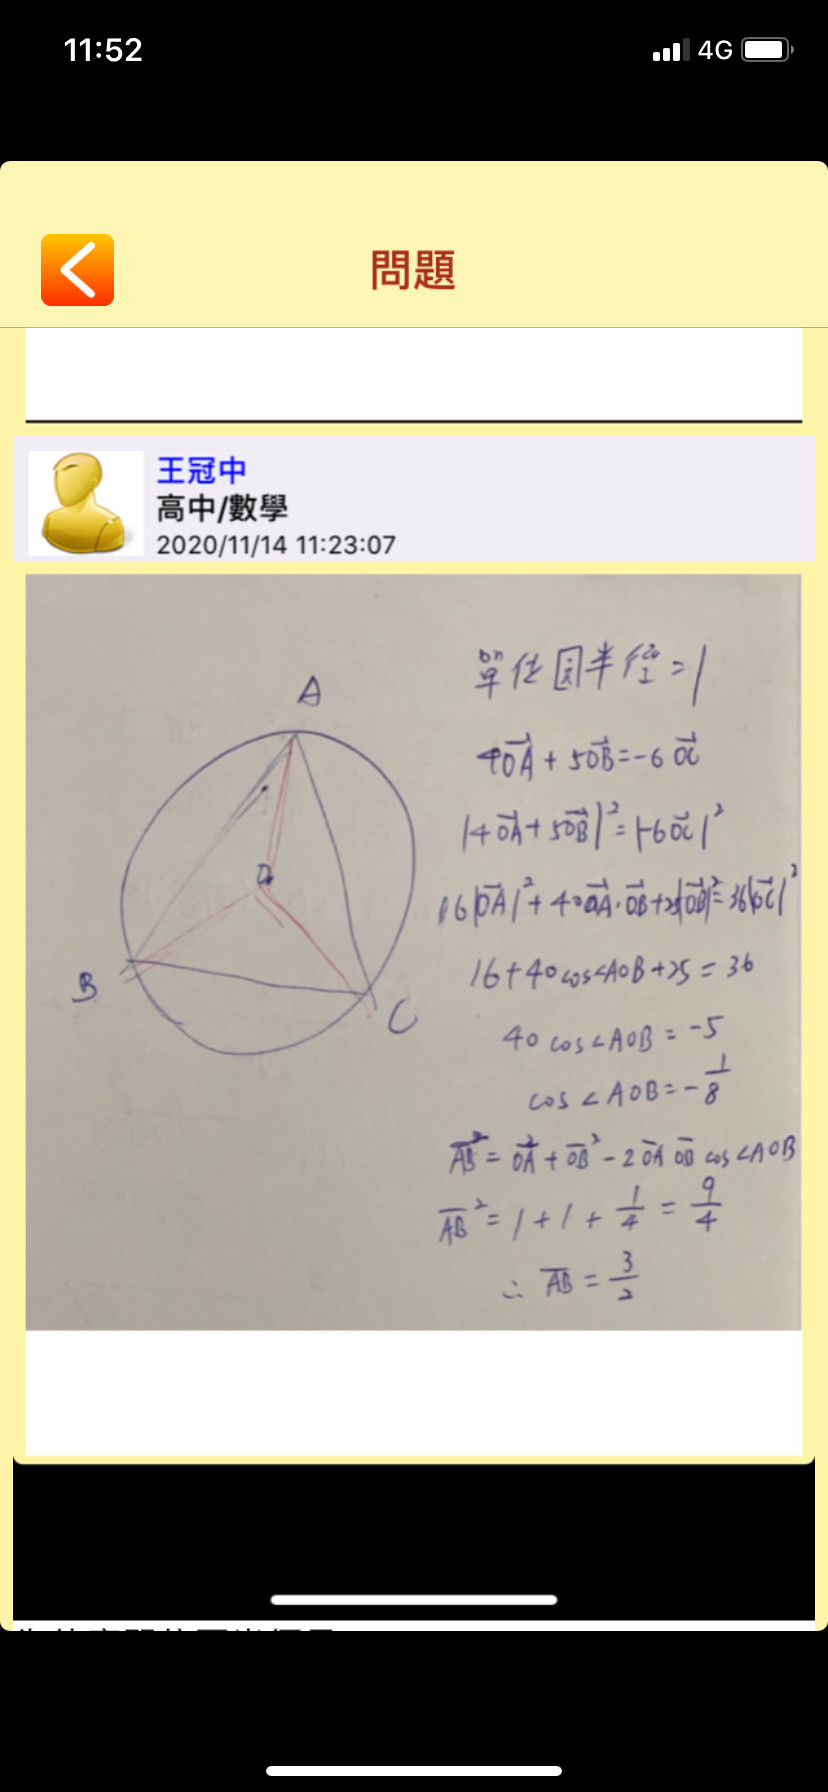 11:52
4G
問題
王冠中
高中/數學
2020/11/14 11:23:07
A
B
C
單位圓半徑=1
4OA + 5OB = -6 OC
|4OA + 5OB|² = |-6OC|²
16|OA|² + 40OA·OB + 25|OB|² = 36|OC|²
16+40cos∠AOB+25 = 36
40 cos∠AOB = -5
cos∠AOB = -1/8
AB² = OA² + OB² - 2 OA OB cos∠AOB
AB² = 1 + 1 + 1/4 = 9/4
∴ AB = 3/2